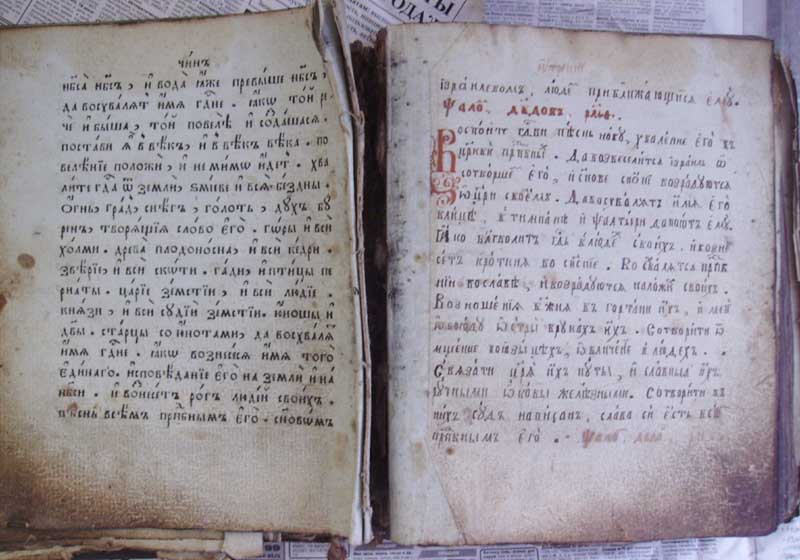 чинъ
нб҃са нб҃съ, и҆ вода ꙗ҆же превыше нб҃съ,
да восхвалятъ и҆мѧ гд҃не. ꙗ҆кѡ той р
че и҆ быша, той повелѣ и҆ созда́шася.
постави ѧ҆̀ в вѣкъ, и҆ в вѣкъ вѣка. по
велѣніе положи, и҆ не мимѡ и҆детъ. хва
лите гд҃а ѿ земли, ѕміеве и҆ вся бездны.
Огнь, градъ, снѣгъ, голоть, духъ бу
ринъ, творящія слово е҆го. горы и҆ вси
холми. древа плодоносна, и҆ вси кедри.
звѣріе, и҆ вси скоти. гади, и҆ птицы пе
рнаты. царіе земстіи, и҆ вси людіе.
князи, и҆ вси судіи земстіи. ю҆ноши и҆
дв҃ы. старцы со ю҆нотами, да восхваля
и҆мя гд҃не. ꙗ҆кѡ вознесеся и҆мя того
е҆динаго. и҆сповѣданіе е҆го на земли и҆ на
нб҃си. и҆ вознесетъ рогъ людій своихъ.
пѣснь всѣмъ прпⷣбнымъ е҆го. сн҃овѡмъ
і҆зраилевомъ, людемъ приближающимся е҆му.
Ѱало́. дв҃довъ. рм҃ѳ.
Воспойте гд҃ви пѣснь нову, хваленіе е҆го въ
цр҃кви прпⷣбныⷯ. Да возвеселится і҆зраиль ѡ҆
сотворшемъ е҆го, и҆ сн҃ове сиѡни возрадуются
ѡ҆ цр҃и своемъ. Да восхвалятъ и҆мя е҆го
в лицѣ, в тимпанѣ и҆ ѱалтыри да поютъ е҆му.
Ꙗко бл҃говолитъ гд҃ь в людехъ своихъ. и҆ возне
сетъ кроткия во спⷭ҇ение. Восхвалятся прпⷣб
нии во славѣ, и҆ возрадуются на ложахъ своихъ.
Возношения бж҃ия въ гортани и҆хъ, и҆ мечи
ѡ҆боюду ѡ҆стры в рукахъ и҆хъ. Сотворити ѿ
мщение во ꙗ҆зыцѣхъ, ѡ҆бличение в людехъ.
Связати цр҃я и҆хъ путы, и҆ славныя и҆хъ
ручными ѡ҆ковы желѣзными. Сотворити въ
нихъ судъ написанъ, слава си е҆сть всѣⷨ
прпⷣбнымъ е҆го.